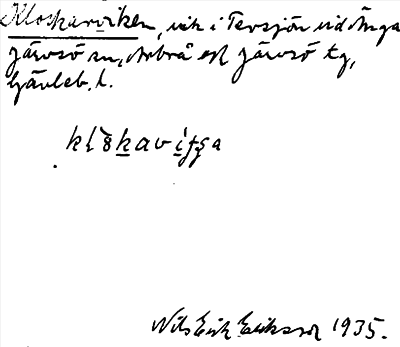 Kloskarviken, vik i Tevsjön vid Ånga
Järvsö sn, Arbrå och Järvsö tg,
Gävleb. l.
Nils Erik Eriksson 1935.